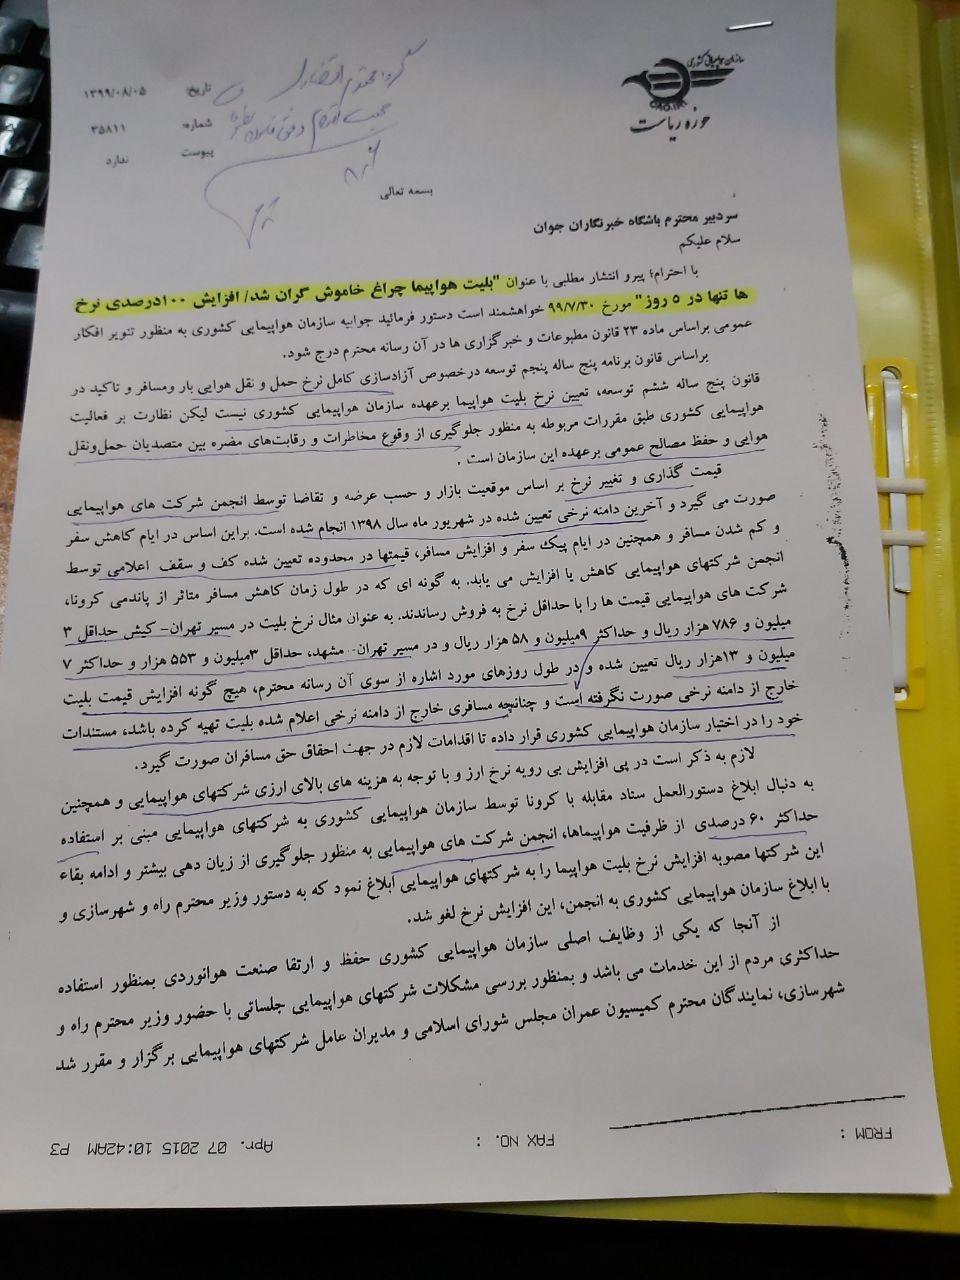 سازمان هواپیمائی کشوری
CAO.IRI
حوزه ریاست
تاریخ: ۱۳۹۹/۰۸/۰۵
شماره: ۳۵۸۱۱
پیوست ندارد
گروه محترم
بسمه تعالی
سردبیر محترم باشگاه خبرنگاران جوان
سلام علیکم
با احترام؛ پیرو انتشار مطلبی با عنوان "بلیت هواپیما چراغ خاموش گران شد/ افزایش ۱۰۰درصدی نرخ
ها تنها در ۵ روز" مورخ ۹۹/۷/۳۰ خواهشمند است دستور فرمائید جوابیه سازمان هواپیمایی کشوری به منظور تنویر افکار
عمومی براساس ماده ۲۳ قانون مطبوعات و خبرگزاری ها در آن رسانه محترم درج شود.
براساس قانون برنامه پنج ساله پنجم توسعه درخصوص آزادسازی کامل نرخ حمل و نقل هوایی بار ومسافر و تاکید در
قانون پنج ساله ششم توسعه، تعیین نرخ بلیت هواپیما برعهده سازمان هواپیمایی کشوری نیست لیکن نظارت بر فعالیت
هواپیمایی کشوری طبق مقررات مربوطه به منظور جلوگیری از وقوع مخاطرات و رقابت‌های مضره بین متصدیان حمل‌ونقل
هوایی و حفظ مصالح عمومی برعهده این سازمان است .
قیمت گذاری و تغییر نرخ بر اساس موقعیت بازار و حسب عرضه و تقاضا توسط انجمن شرکت های هواپیمایی
صورت می گیرد و آخرین دامنه نرخی تعیین شده در شهریور ماه سال ۱۳۹۸ انجام شده است. براین اساس در ایام کاهش سفر
و کم شدن مسافر و همچنین در ایام پیک سفر و افزایش مسافر، قیمتها در محدوده تعیین شده کف و سقف اعلامی توسط
انجمن شرکتهای هواپیمایی کاهش یا افزایش می یابد. به گونه ای که در طول زمان کاهش مسافر متاثر از پاندمی کرونا،
شرکت های هواپیمایی قیمت ها را با حداقل نرخ به فروش رساندند. به عنوان مثال نرخ بلیت در مسیر تهران- کیش حداقل ۳
میلیون و ۷۸۶ هزار ریال و حداکثر ۹میلیون و ۵۸ هزار ریال و در مسیر تهران- مشهد، حداقل ۳میلیون و ۵۵۳ هزار و حداکثر ۷
میلیون و ۱۳هزار ریال تعیین شده و در طول روزهای مورد اشاره از سوی آن رسانه محترم، هیچ گونه افزایش قیمت بلیت
خارج از دامنه نرخی صورت نگرفته است و چنانچه مسافری خارج از دامنه نرخی اعلام شده بلیت تهیه کرده باشد، مستندات
خود را در اختیار سازمان هواپیمایی کشوری قرار داده تا اقدامات لازم در جهت احقاق حق مسافران صورت گیرد.
لازم به ذکر است در پی افزایش بی رویه نرخ ارز و با توجه به هزینه های بالای ارزی شرکتهای هواپیمایی و همچنین
به دنبال ابلاغ دستورالعمل ستاد مقابله با کرونا توسط سازمان هواپیمایی کشوری به شرکتهای هواپیمایی مبنی بر استفاده
حداکثر ۶۰ درصدی از ظرفیت هواپیماها، انجمن شرکت های هواپیمایی به منظور جلوگیری از زیان دهی بیشتر و ادامه بقاء
این شرکتها مصوبه افزایش نرخ بلیت هواپیما را به شرکتهای هواپیمایی ابلاغ نمود که به دستور وزیر محترم راه و شهرسازی و
با ابلاغ سازمان هواپیمایی کشوری به انجمن، این افزایش نرخ لغو شد.
از آنجا که یکی از وظایف اصلی سازمان هواپیمایی کشوری حفظ و ارتقا صنعت هوانوردی بمنظور استفاده
حداکثری مردم از این خدمات می باشد و بمنظور بررسی مشکلات شرکتهای هواپیمایی جلساتی با حضور وزیر محترم راه و
شهرسازی، نمایندگان محترم کمیسیون عمران مجلس شورای اسلامی و مدیران عامل شرکتهای هواپیمایی برگزار و مقرر شد
FROM : FAX NO. : Apr. 07 2015 10:42AM P3